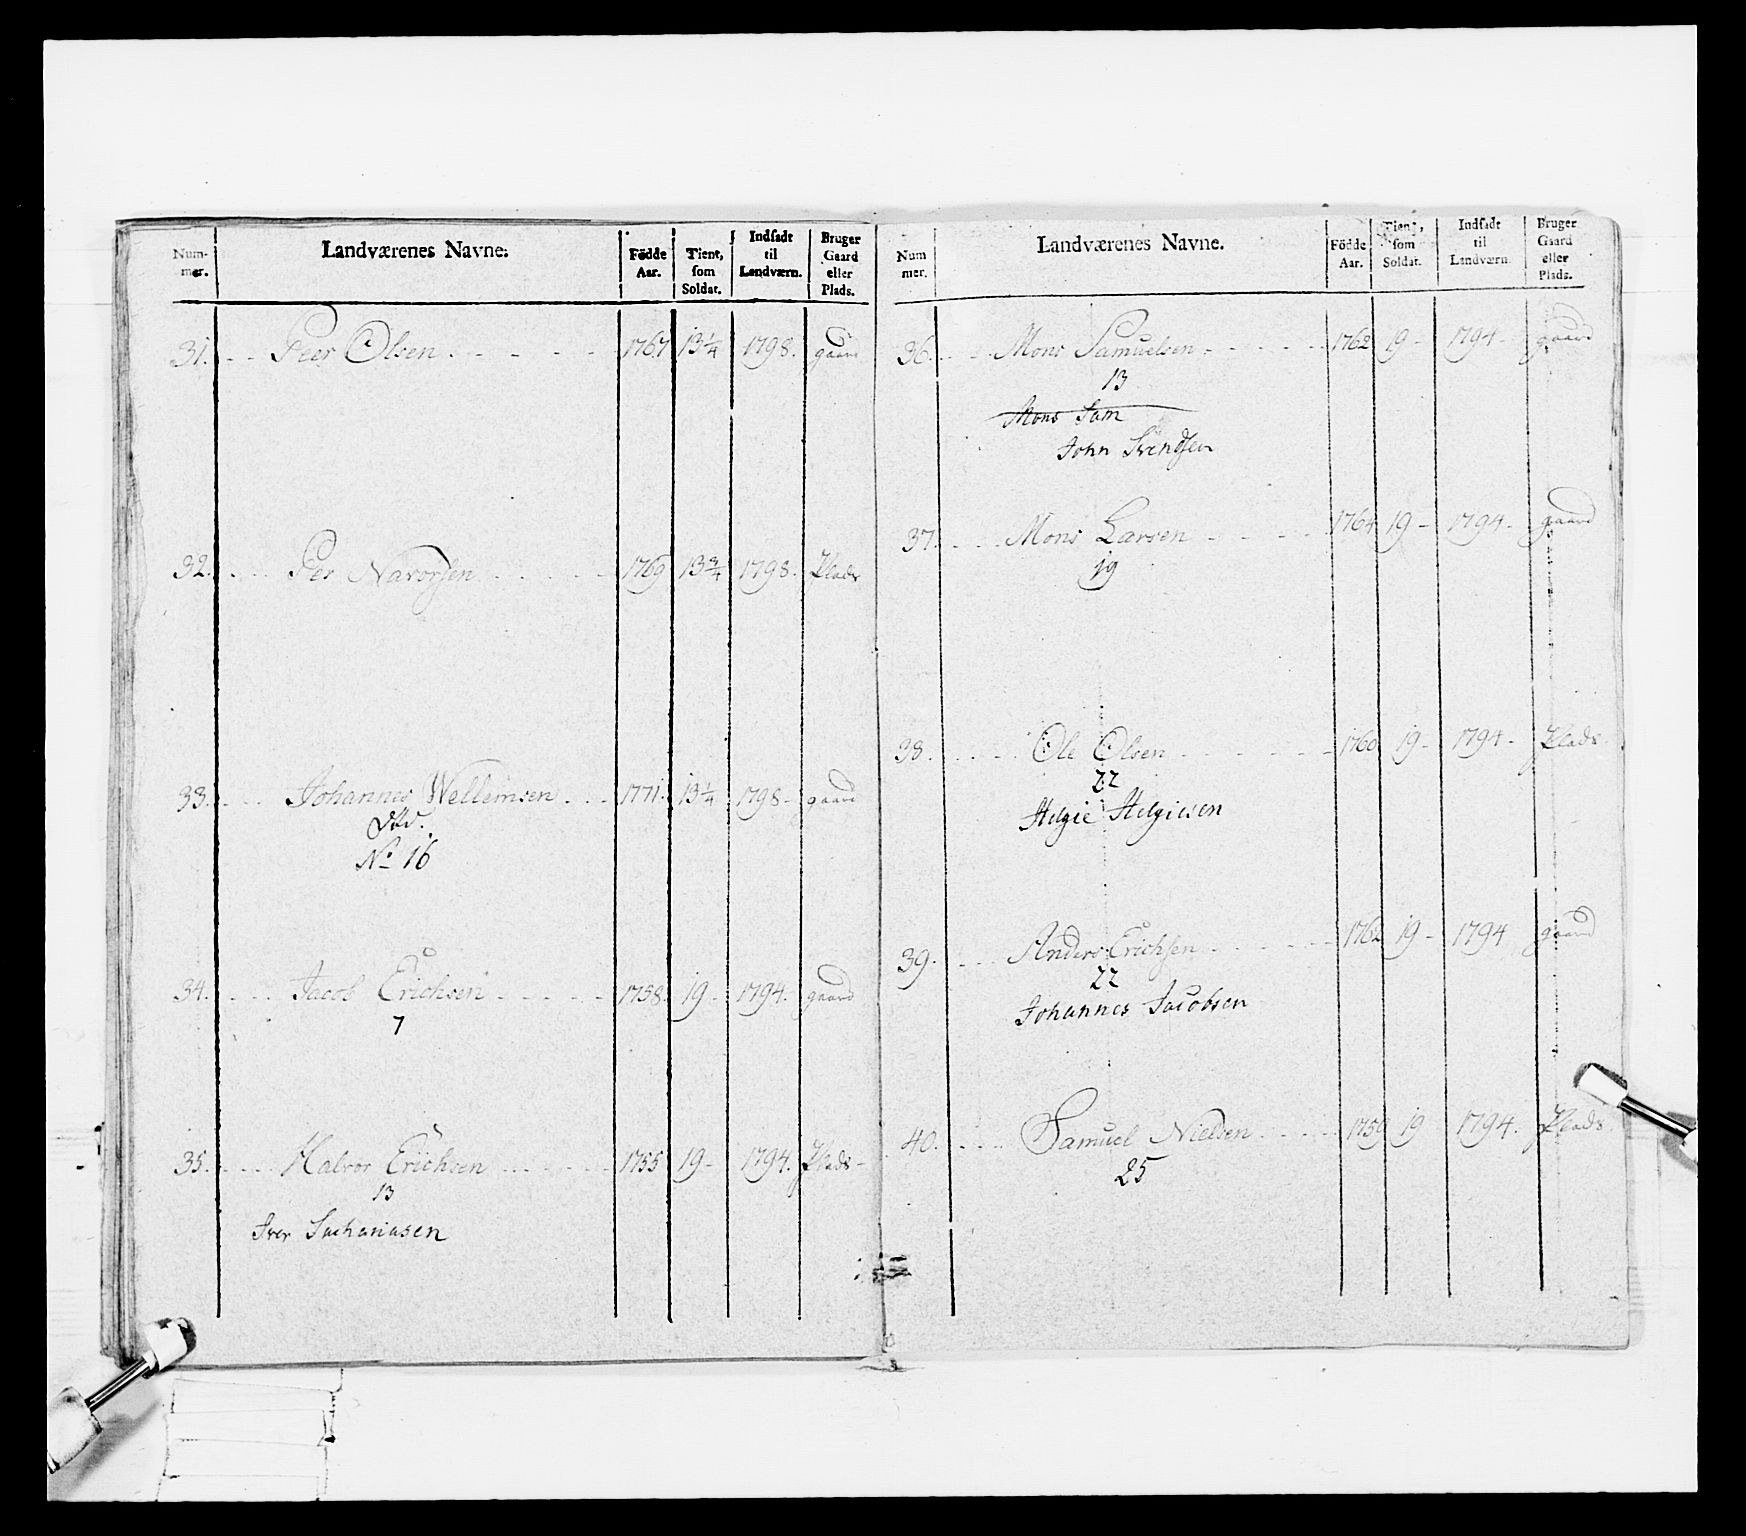 Num-
mer.
Landværenes Navne:
Födde
Aar.
Tient,
som
Soldat.
Indsadt
til
Landværn.
Bruger
Gaard
eller
Plads.
31. Peer Olsen 1767 13 1/4 1798. gaard
32. Per Navorsen 1769 13 3/4 1798. Plads
33. Johannes Wellemsen 1771. 13 1/4 1798 - gaard
Död.
No 16
34. Jacob Erichsen 1758. 19 - 1794. gaard
7
35. Halvor Erichsen 1755 19 - 1794. Plads -
13
Iver Sachariasen
Num
mer.
Landværenes Navne.
Födde
Aar.
Tient,
som
Soldat.
Indsadt
til
Landværn
Bruger
Gaard
eller
Plads.
36. Mons Samuelsen 1762 19 - 1794 - gaard
13
Mons Sam
John Svendsen
37. Mons Larsen 1764 19 - 1794 - gaard
19
38. Ole Olsen 1760 19 - 1794 - Plads.
22
Helgie Helgiesen
39. Anders Erichsen 1762 19 - 1794 gaard
22
Johannes Jacobsen
40. Samuel Nielsen 1759 19 1794. Plads.
25